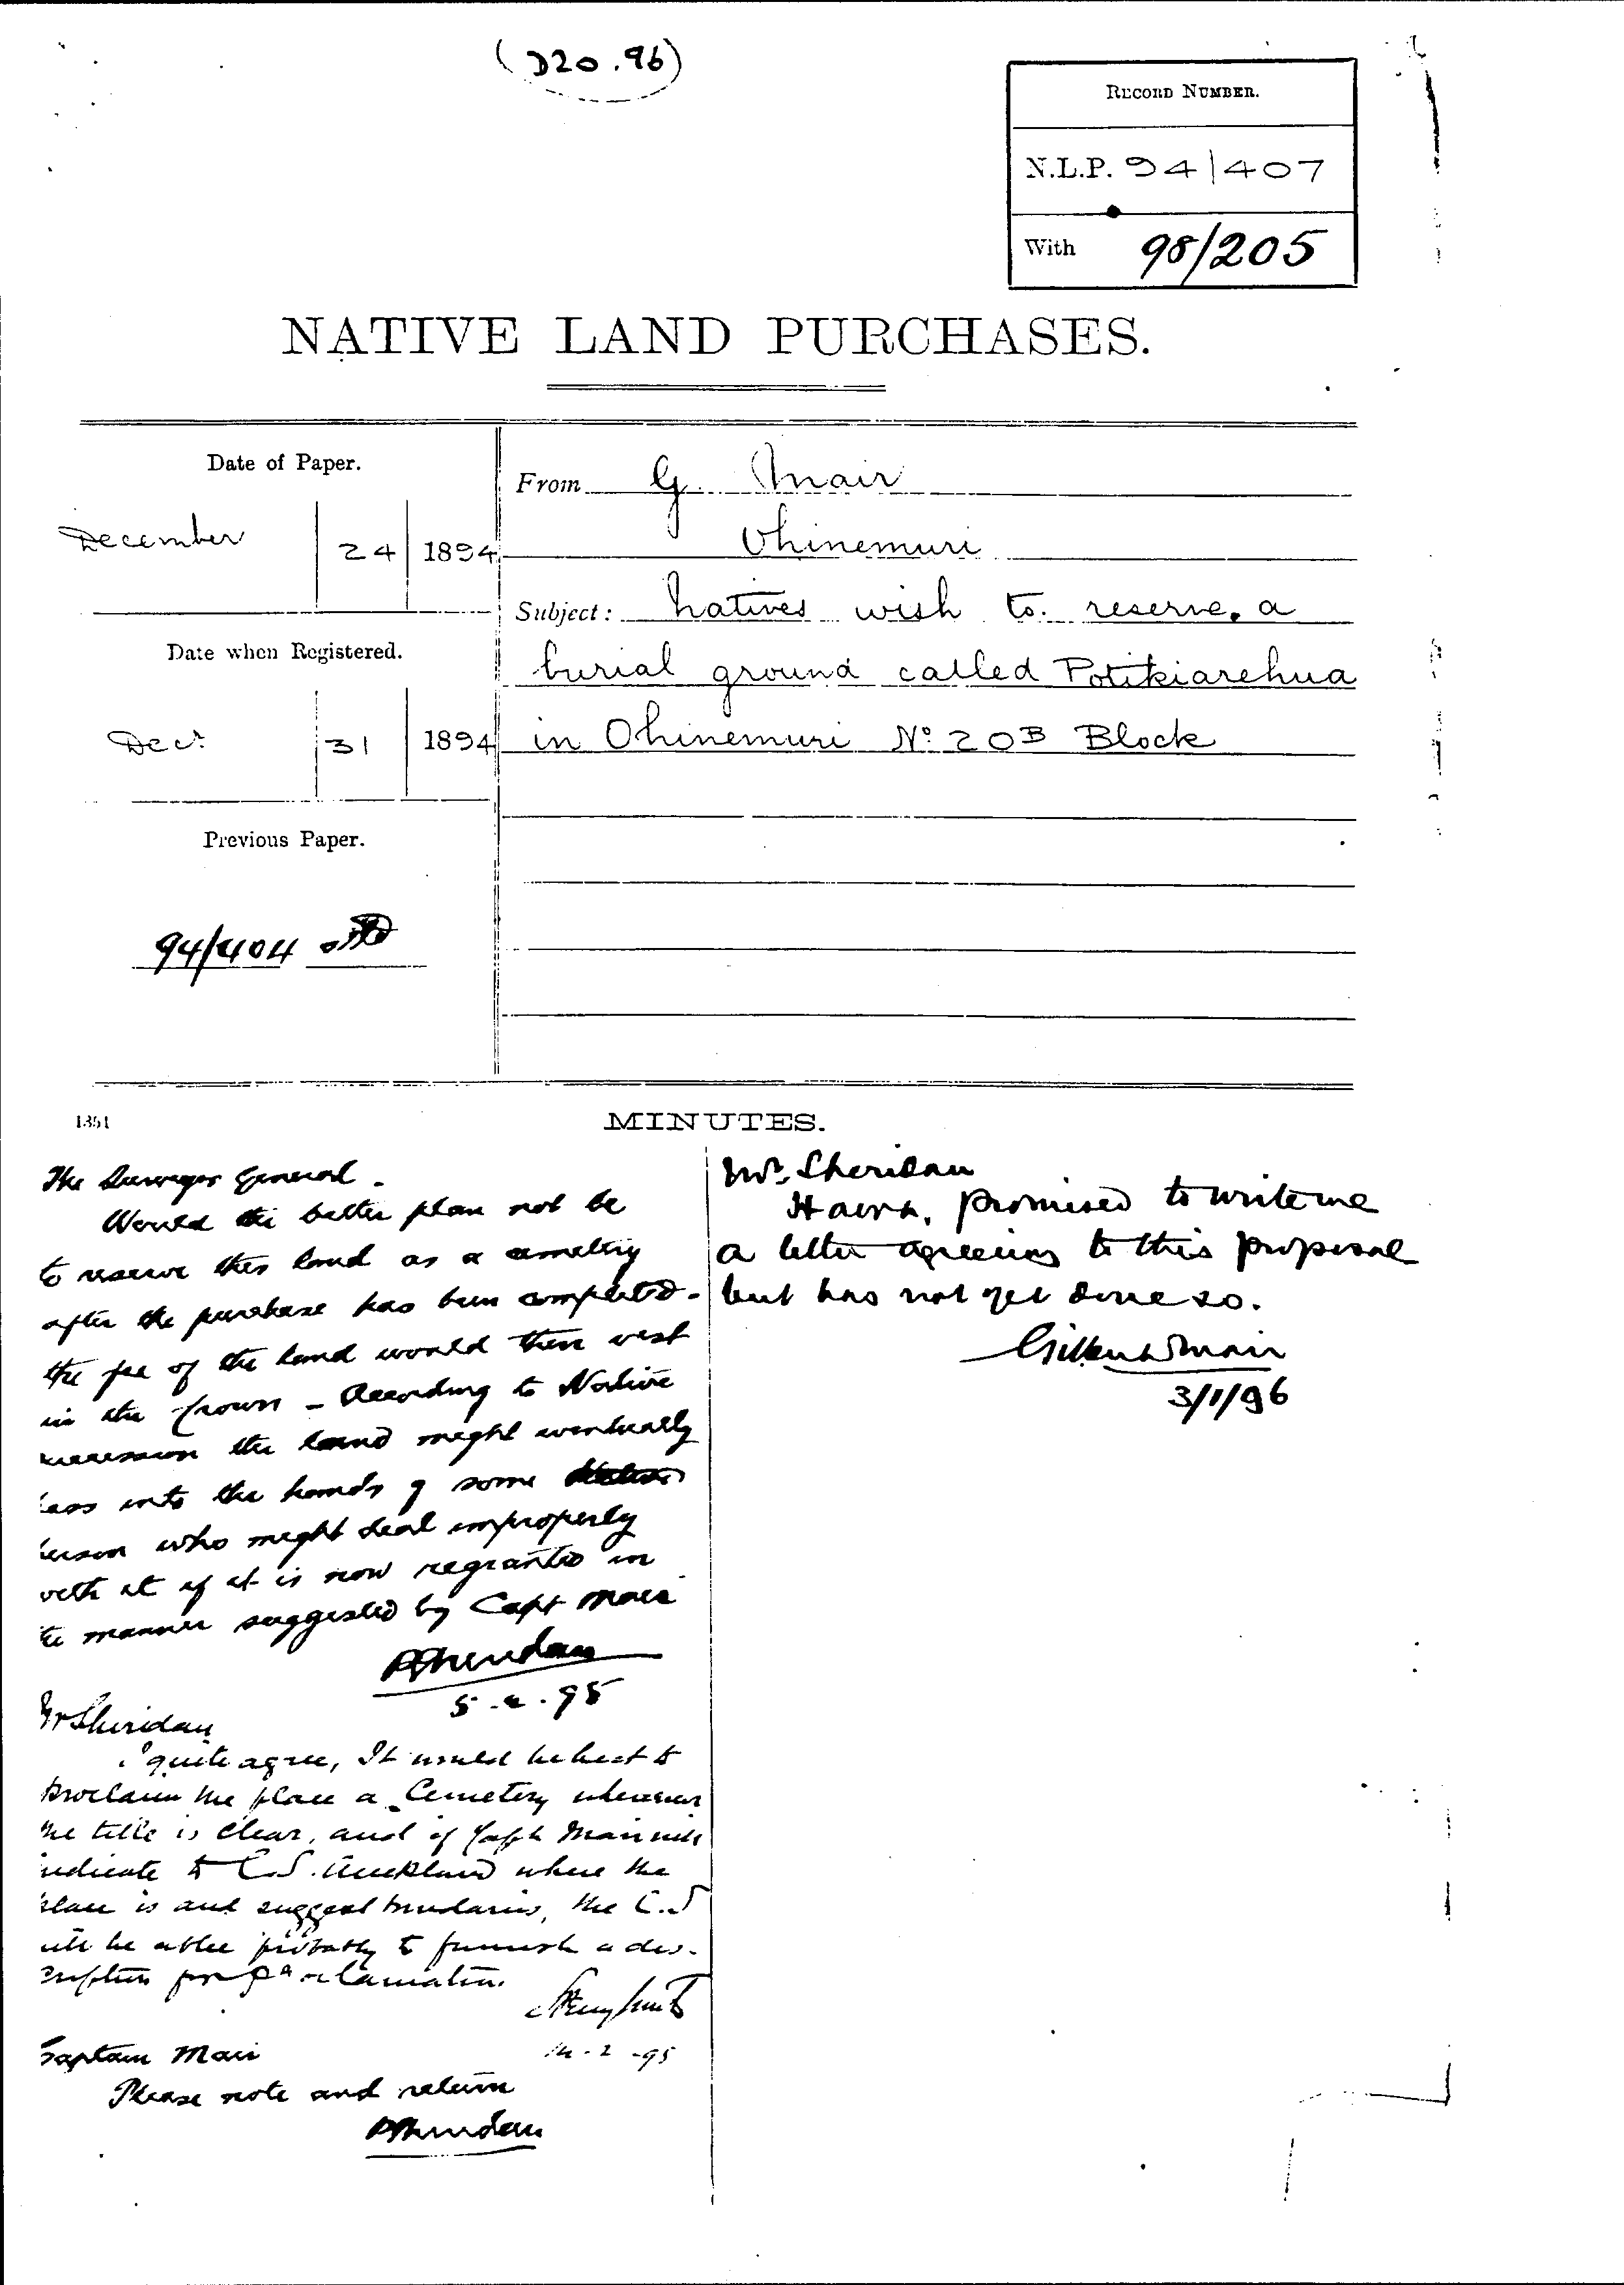 (D20.96)
RECORD NUMBER.
N.L.P. 94/407
With 98/205
NATIVE LAND PURCHASES.
Date of Paper.
December 24 1894
Date when Registered.
Decr 31 1894
Previous Paper.
94/404
From G. Mair
Ohinemuri
Subject: Natives wish to reserve a
burial ground called Potikiarehua
in Ohinemuri No 20B Block
1351
MINUTES.
The Surveyor General.
Would the better plan not be
to reserve this land as a cemetery
after the purchase has been completed.
the fee of the land would then vest
in the Crown - According to Native
succession the land might eventually
pass into the hands of some
person who might deal improperly
with it if it is now regranted in
the manner suggested by Capt Mair
PSheridan
5-2-95
Mr Sheridan
I quite agree, It would be best to
proclaim the place a Cemetery whenever
the title is clear, and if Captn Mair will
indicate to C.S. Auckland where the
place is and suggest boundaries, the C.S
will be able probably to furnish a des-
cription for proclamation.
14-2-95
Captain Mair
Please note and return
PSheridan
Mr. Sheridan
promised to write me
a letter agreeing to this proposal
but has not yet done so.
Gilbert Mair
3/1/96